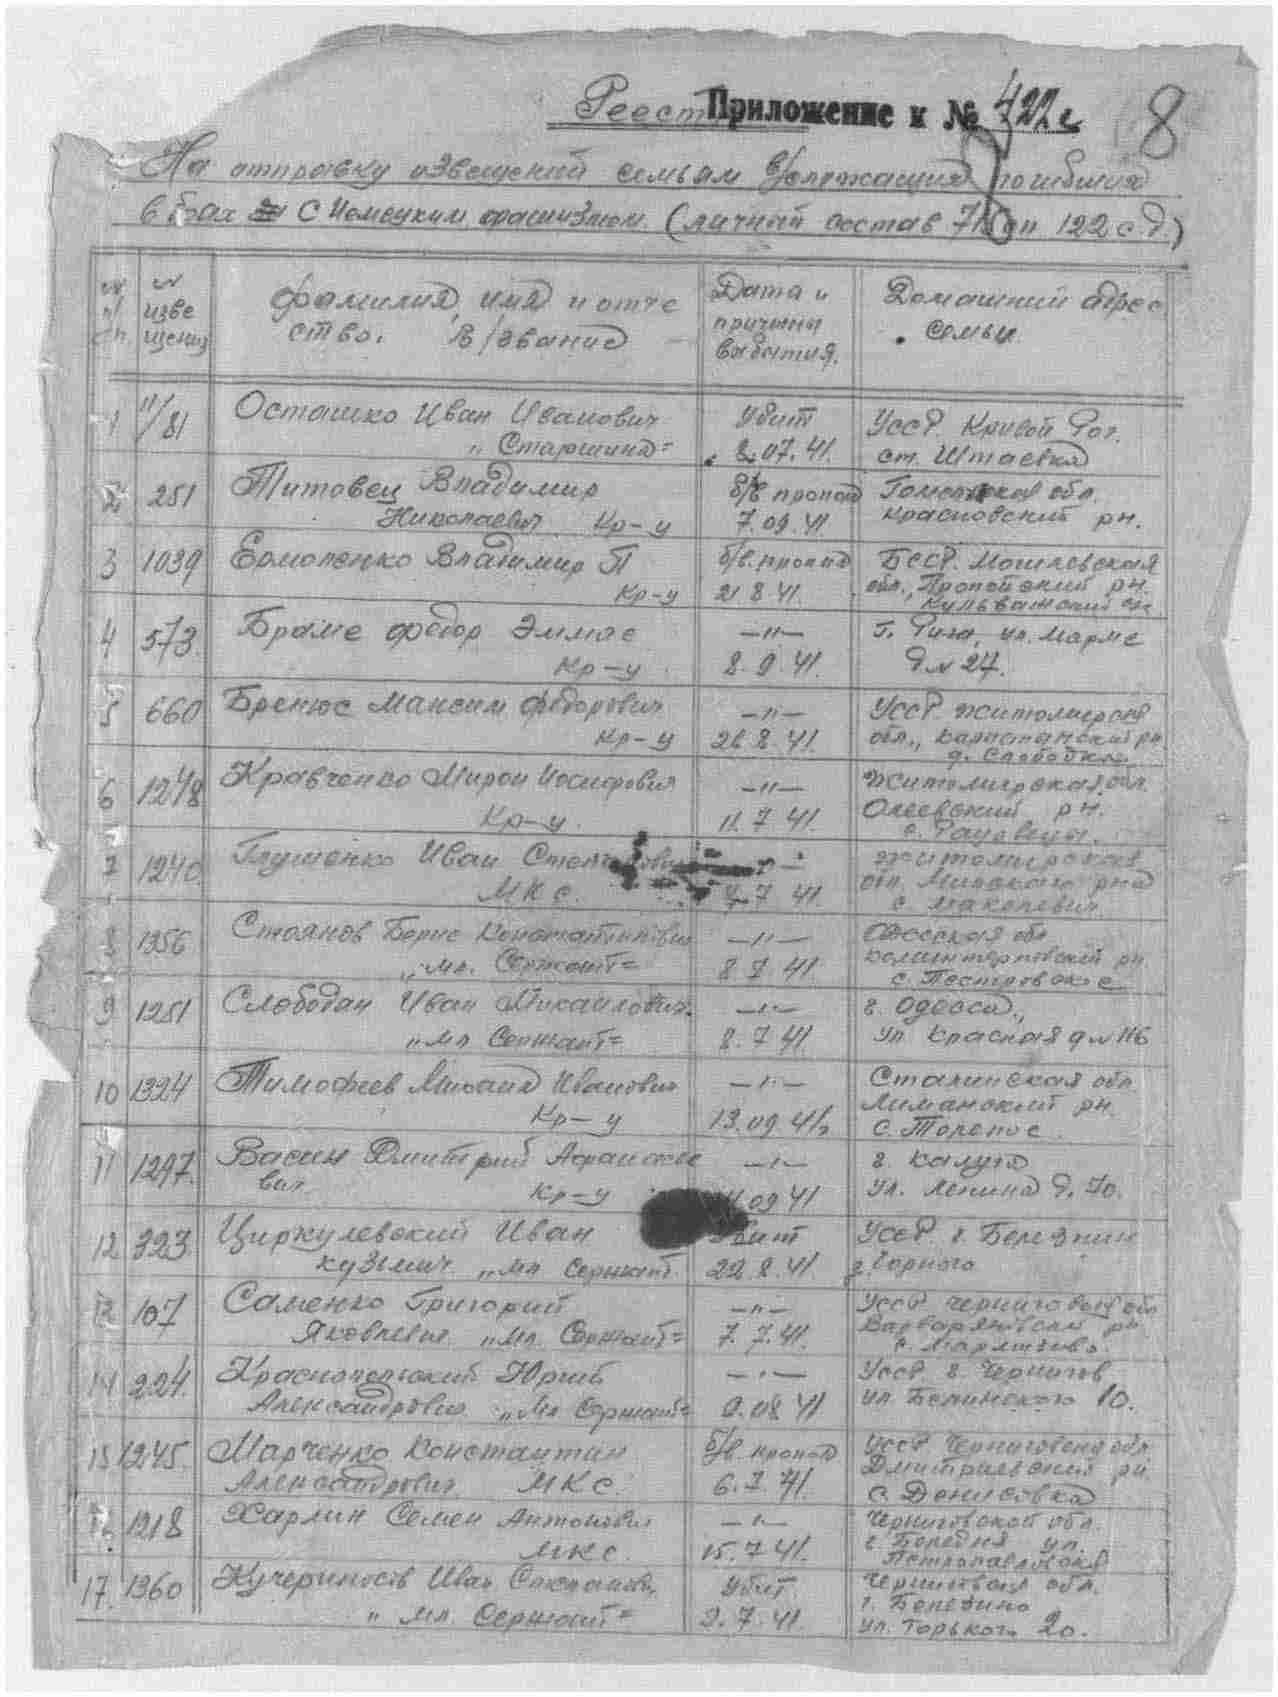 Реестр Приложение к № 422с 8
На отправку извещений семьям в/служащих погибших
в боях с Немецким фашизмом. (личный состав сп 122 с д.)
№ п/п. № извещения Фамилия, имя и отчество. В/звание Дата и причины выбытия. Домашний адрес семьи.
1 11/81 Осташко Иван Иванович Убит УССР. Кривой Рог.
„ Старшина = 07.41. ст.
2 251 Титовец Владимир б/в пропал Гомельская обл.
Николаевич Кр-ц 7.09.41. рн.
3 1039 Ермоленко Владимир П б/в. пропал БССР. Могилевская
Кр-ц 21 8 41. обл., Пропойский рн.
4 573. Браме Федор —"— г. Рига, ул.
Кр-ц 8. 9. 41. д № 27.
5 660 Максим Федорович —"— УССР. Житомирская
Кр-ц 26. 8. 41. обл., рн
д. Слободка
6 1248 Кравченко Мирон Иосифович —"— Житомирская обл.
Кр-ц. 11. 7 41. рн.
с.
7 1240. Глущенко Иван —"— Житомирская
МКС. 7 41. обл.
с.
8 1356 Стоянов Борис Константинович —"— Одесская обл
„мл. Сержант= 8 7 41. рн
с.
9 1251 Слободан Иван Михайлович. —"— г. Одесса,
„мл Сержант= 8. 7 41. ул Красная д № 116
10 1324 Тимофеев Михаил Иванович —"— Сталинская обл
Кр-ц 13. 09 41г Лиманский рн.
с.
11 1297. Васин Дмитрий Афанасье —"— г. Калуга
вич. Кр-ц 09 41. ул. Ленина д. 70.
12 323 Циркулевский Иван Убит УССР г.
Кузьмич. „мл Сержант. 22. 8. 41.
13 107 Саменко Григорий —"— УССР. Черниговская обл
Яковлевич. „мл. Сержант= 7. 7. 41. рн
с.
14 224. Краснопольский Юрий —"— УССР. г. Чернигов
Александрович. „мл Сержант= 9. 08 41 ул. Белинского 10.
15 1245. Марченко Константин б/в. пропал УССР. Черниговская обл
Александрович. МКС. 6. 7. 41. Дмитриевский рн.
с. Денисовка
16. 1218 Харлин Семен Антонович —"— Черниговской обл.
МКС. 15. 7 41. г. ул.
Петропавловская
17. 1360 Иван Убит. Черниговская обл.
„ мл. Сержант= 9. 7. 41. г.
ул. Горького 20.